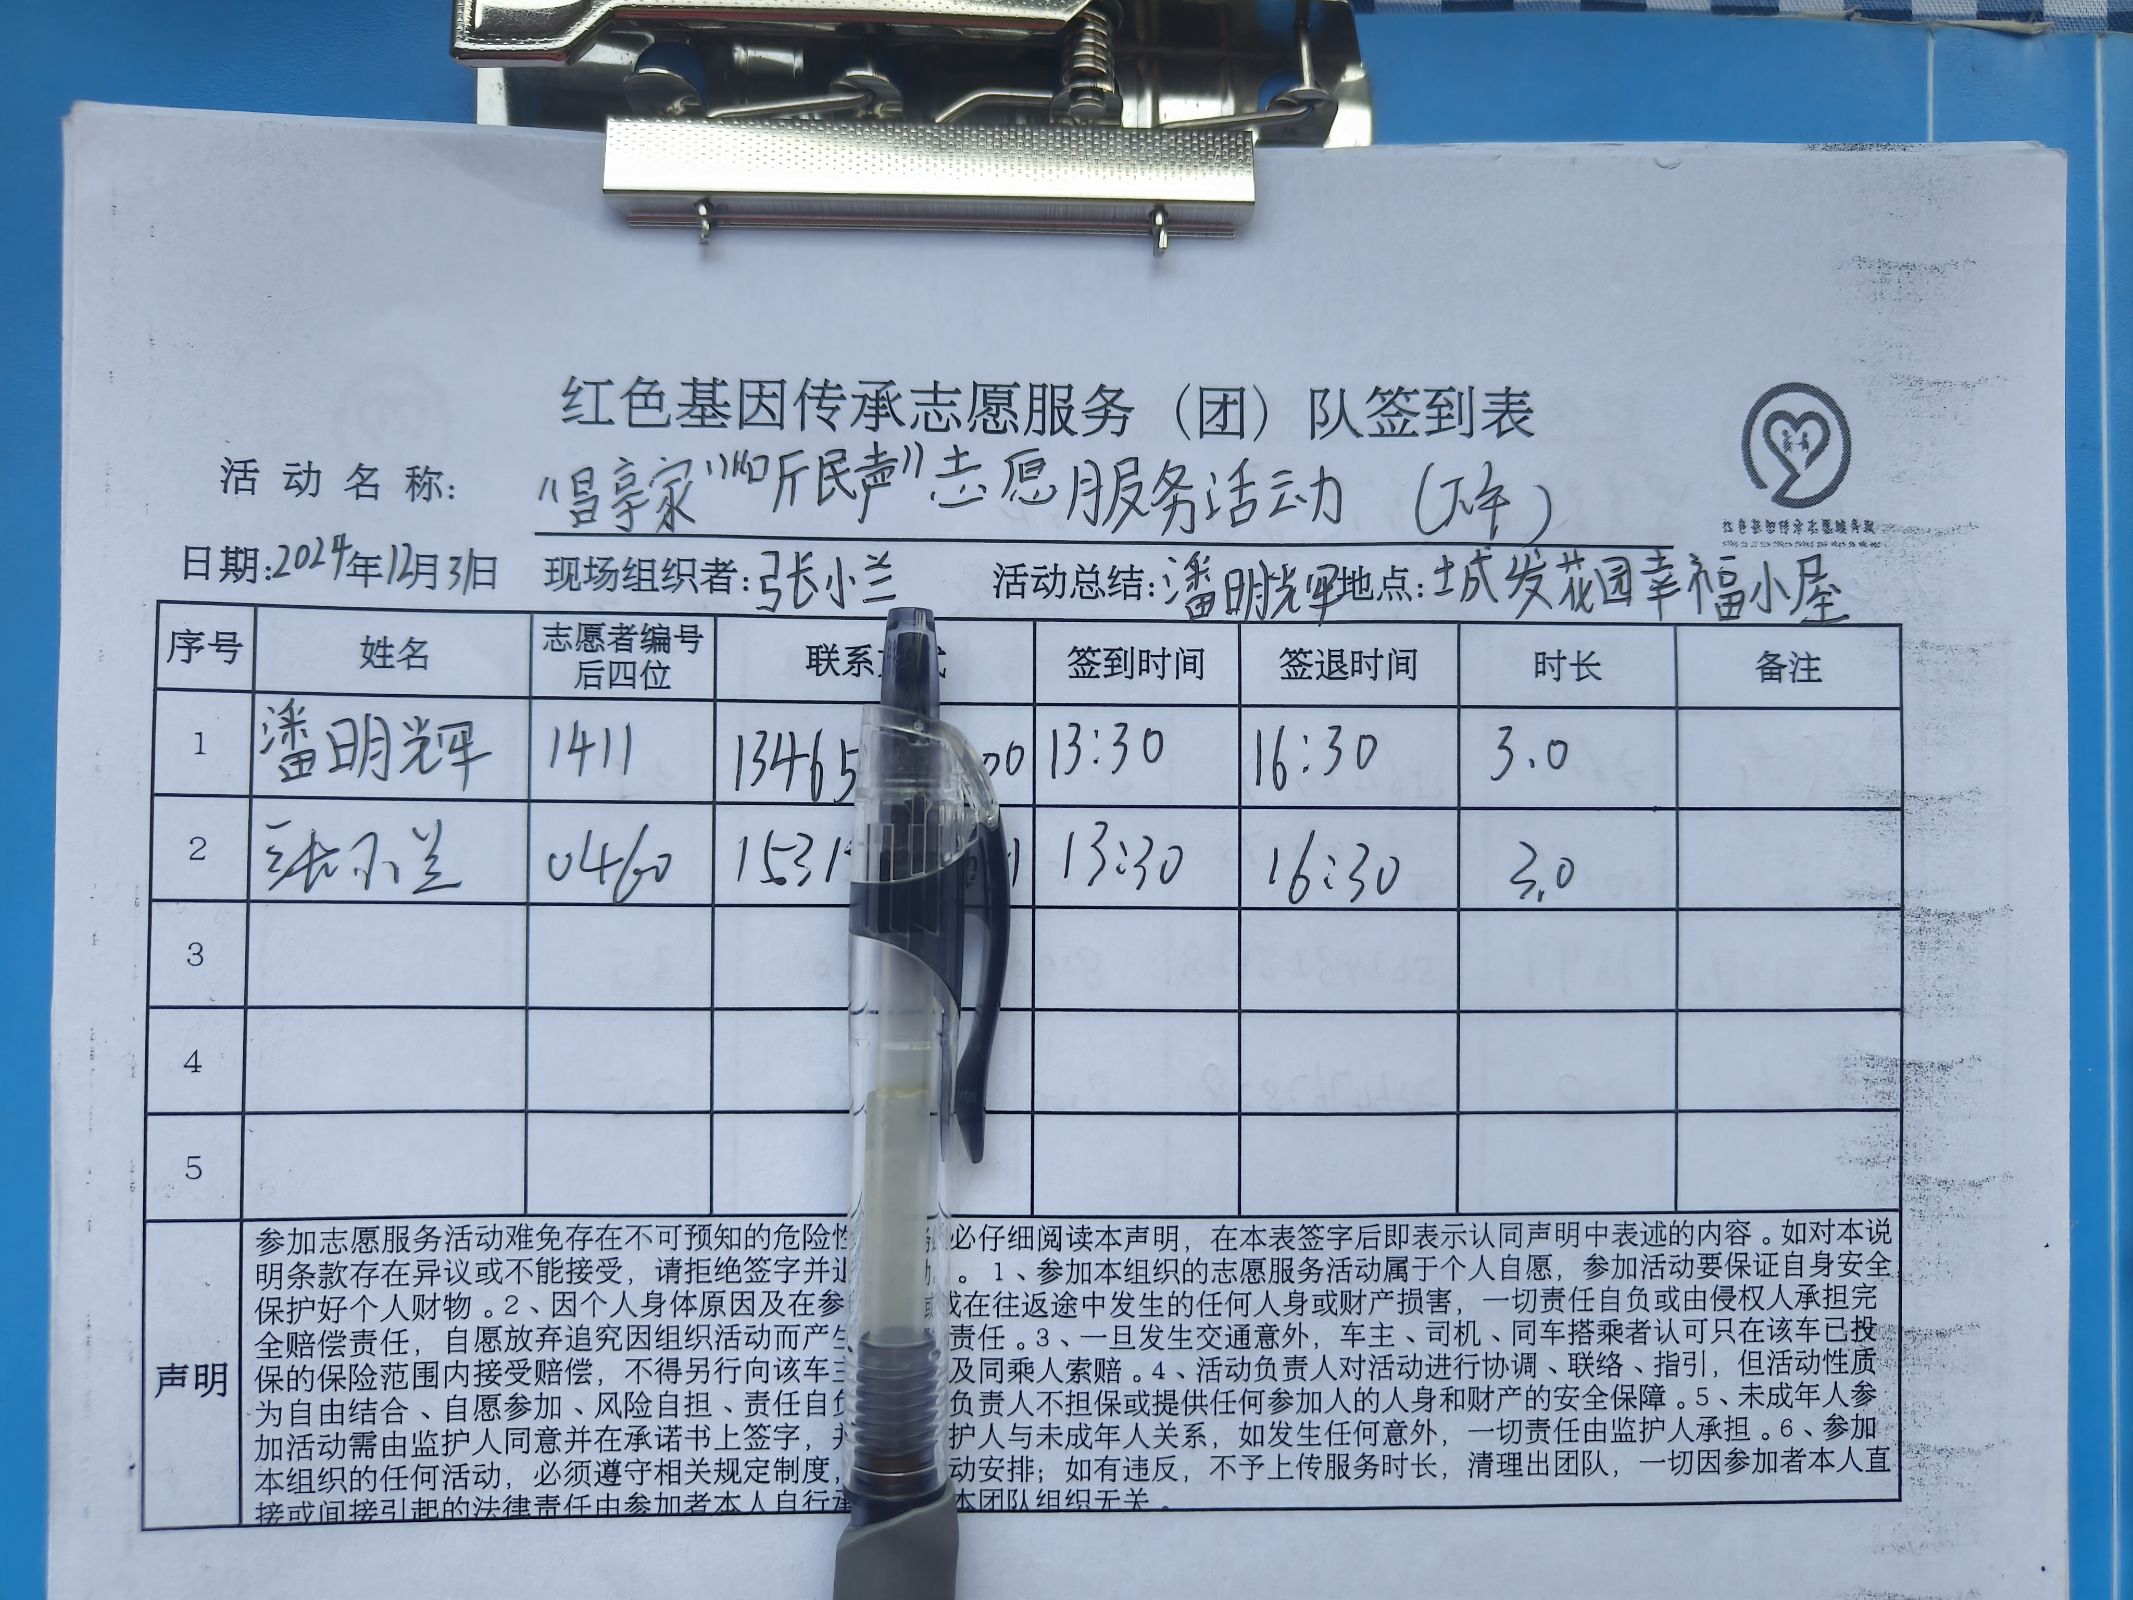 红色基因传承志愿服务（团）队签到表
活动名称：“唱享家”“聆听民声”志愿服务活动（下午）
日期：2024年12月31日 现场组织者：张小兰 活动总结：潘明辉 地点：城发花园幸福小屋
序号 姓名 志愿者编号后四位 联系 签到时间 签退时间 时长 备注
1 潘明辉 1411 13465 00 13:30 16:30 3.0
2 张小兰 0460 1531 1 13:30 16:30 3.0
3
4
5
声明
参加志愿服务活动难免存在不可预知的危险性 必仔细阅读本声明，在本表签字后即表示认同声明中表述的内容。如对本说
明条款存在异议或不能接受，请拒绝签字并退 。1、参加本组织的志愿服务活动属于个人自愿，参加活动要保证自身安全
保护好个人财物。2、因个人身体原因及在参 或在往返途中发生的任何人身或财产损害，一切责任自负或由侵权人承担完
全赔偿责任，自愿放弃追究因组织活动而产生 责任。3、一旦发生交通意外，车主、司机、同车搭乘者认可只在该车已投
保的保险范围内接受赔偿，不得另行向该车主 及同乘人索赔。4、活动负责人对活动进行协调、联络、指引，但活动性质
为自由结合、自愿参加、风险自担、责任自负 负责人不担保或提供任何参加人的人身和财产的安全保障。5、未成年人参
加活动需由监护人同意并在承诺书上签字，并 护人与未成年人关系，如发生任何意外，一切责任由监护人承担。6、参加
本组织的任何活动，必须遵守相关规定制度， 动安排；如有违反，不予上传服务时长，清理出团队，一切因参加者本人直
接或间接引起的法律责任由参加者本人自行承 本团队组织无关。